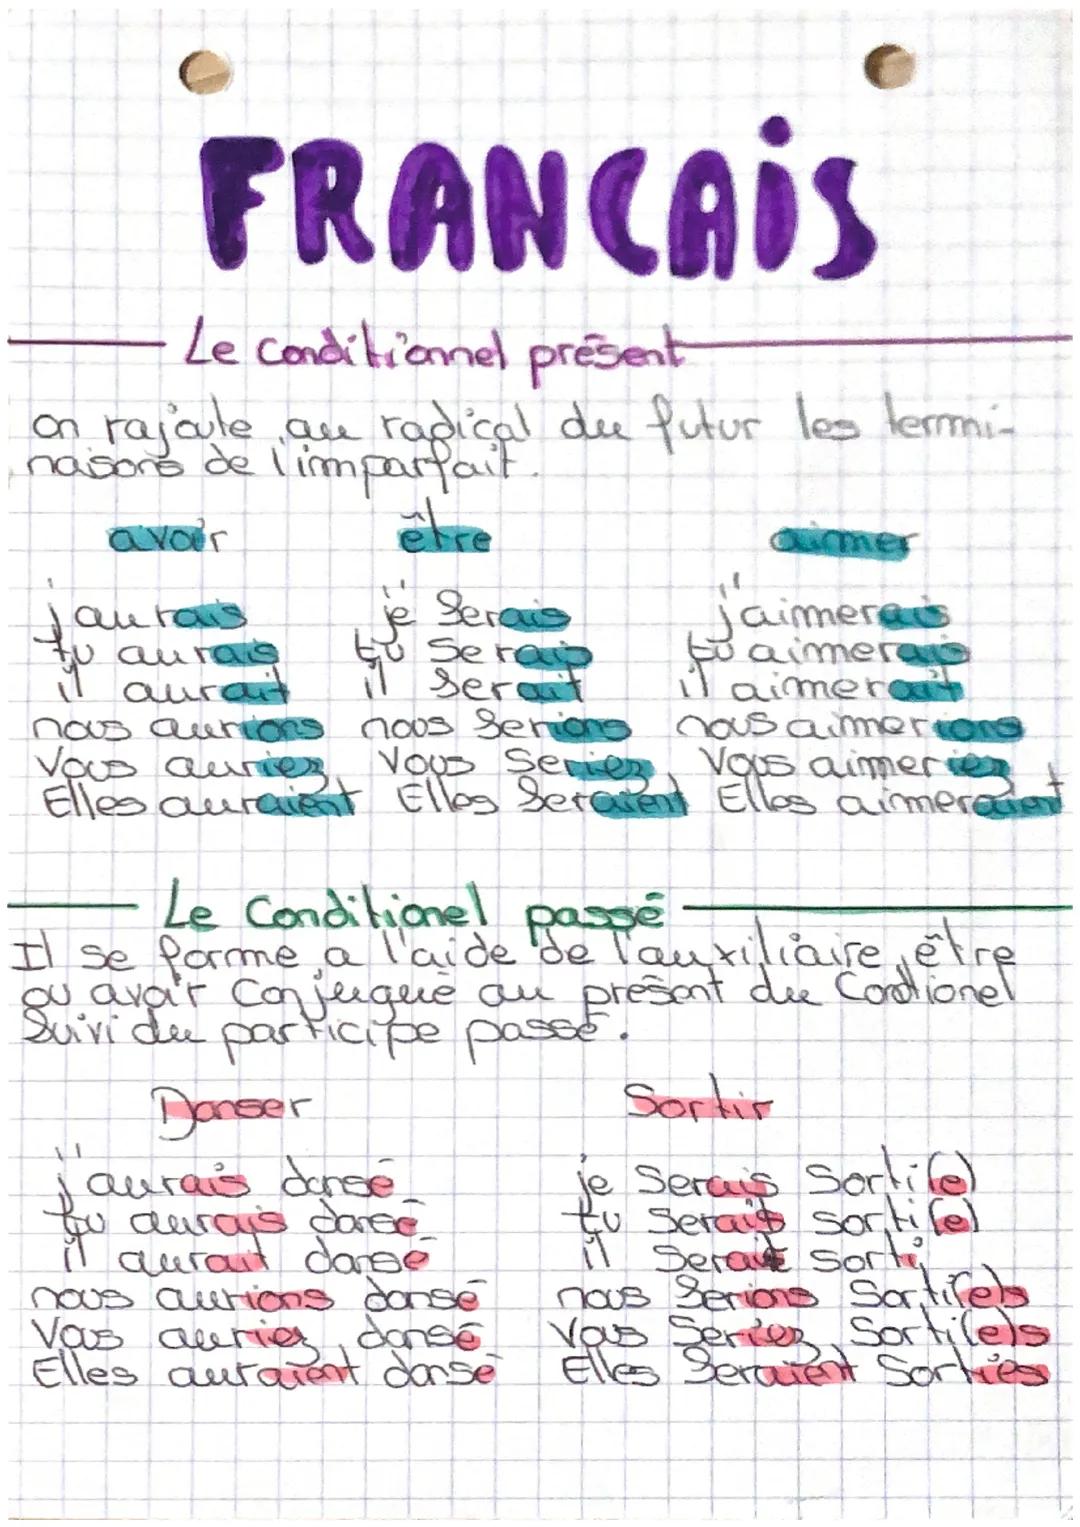 FRANCAIS
Le conditionnel présent
on rajoute au radical du futur les termi-
naisons de l'imparfait.
avoir être aimer
j'aurais je serais j'aimerais
tu aurais tu serais tu aimerais
il aurait il serait il aimerait
nous aurions nous serions nous aimerions
Vous auriez Vous seriez Vous aimeriez
Elles auraient Elles seraient Elles aimeraient
Le Conditionel passé
Il se forme a l'aide de l'auxiliaire être
ou avoir Conjugué au présent du Condtionel
Suivi du participe passé.
Danser Sortir
j'aurais dansé je Serais Sorti(e)
tu aurais dansé tu Serais sorti(e)
il aurait dansé il Serait sorti
nous aurions dansé nous Serions Sorti(e)s
Vous auriez dansé Vous Seriez Sorti(e)s
Elles auraient dansé Elles Seraient Sorties